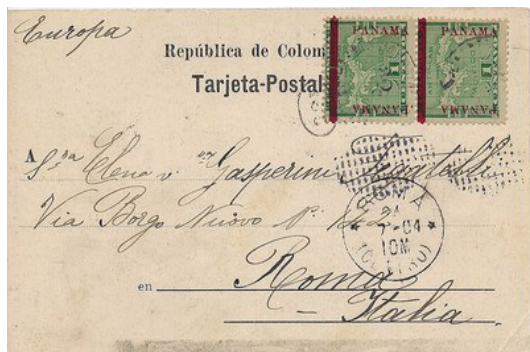 Europa
República de Colom
Tarjeta-Postal
PANAMA PANAMA
1 1
PANAMA PANAMA
A Sra Elena v. Gasperini
Via Borgo Nuovo No. 142
ROMA
7-04
10M
en Roma
Italia